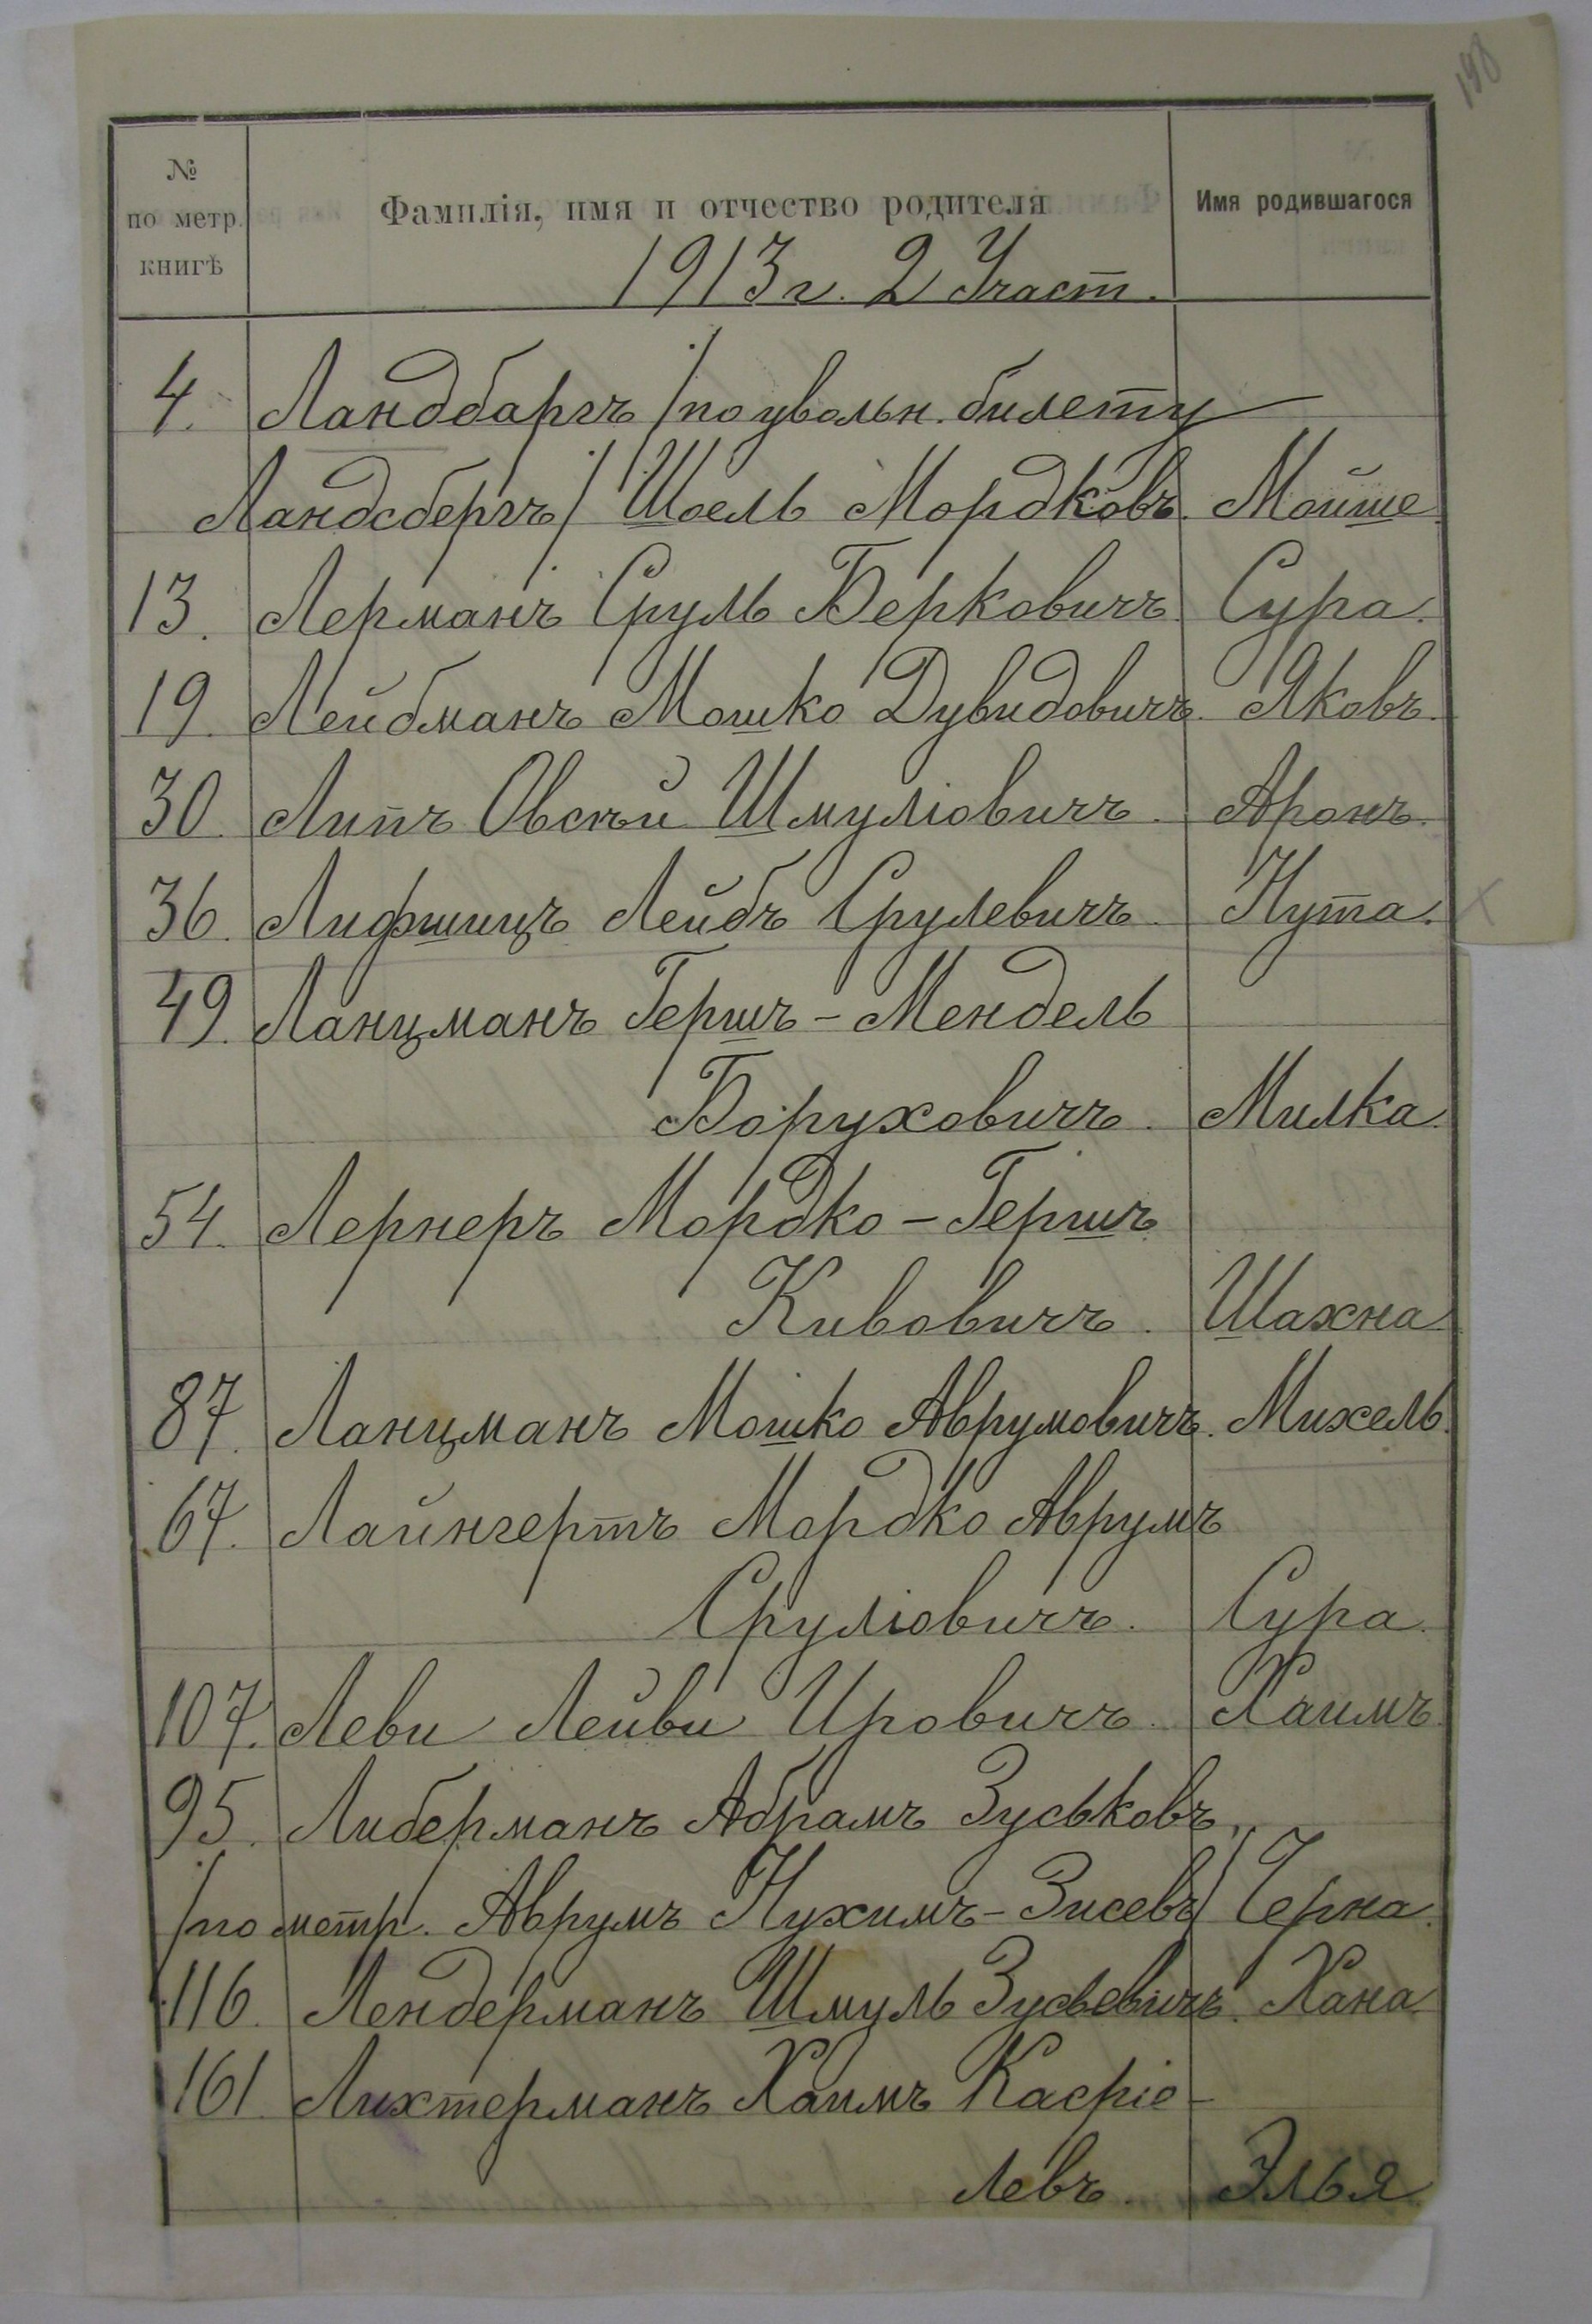 198
№ по метр. книгѣ
Фамилія, имя и отчество родителя
Имя родившагося
1913 г. 2 Участ.
4. Ландбаргъ /по увольн. билету
Ландсбергъ/ Шоель Мордковъ. Мойше.
13. Лерманъ Сруль Берковичъ. Сура.
19. Лейбманъ Мошко Дувидовичъ. Яковъ.
30. Липъ Овсѣй Шмуліовичъ. Аронъ.
36. Лифшицъ Лейбъ Срулевичъ. Нута.
49. Ланцманъ Гершъ-Мендель
Боруховичъ. Милка.
54. Лернеръ Мордко-Гершъ
Кивовичъ. Шахна.
87. Ланцманъ Мошко Аврумовичъ. Михель.
67. Лайнгертъ Мордко Аврумъ
Сруліовичъ. Сура.
107. Леви Лейви Ировичъ. Хаимъ.
95. Либерманъ Абрамъ Зуськовъ
/по метр. Аврумъ Нухимъ-Зисевъ/ Черна.
116. Лендерманъ Шмуль Зусьевичъ. Хана.
161. Лихтерманъ Хаимъ Касріе-
левъ. Элья.